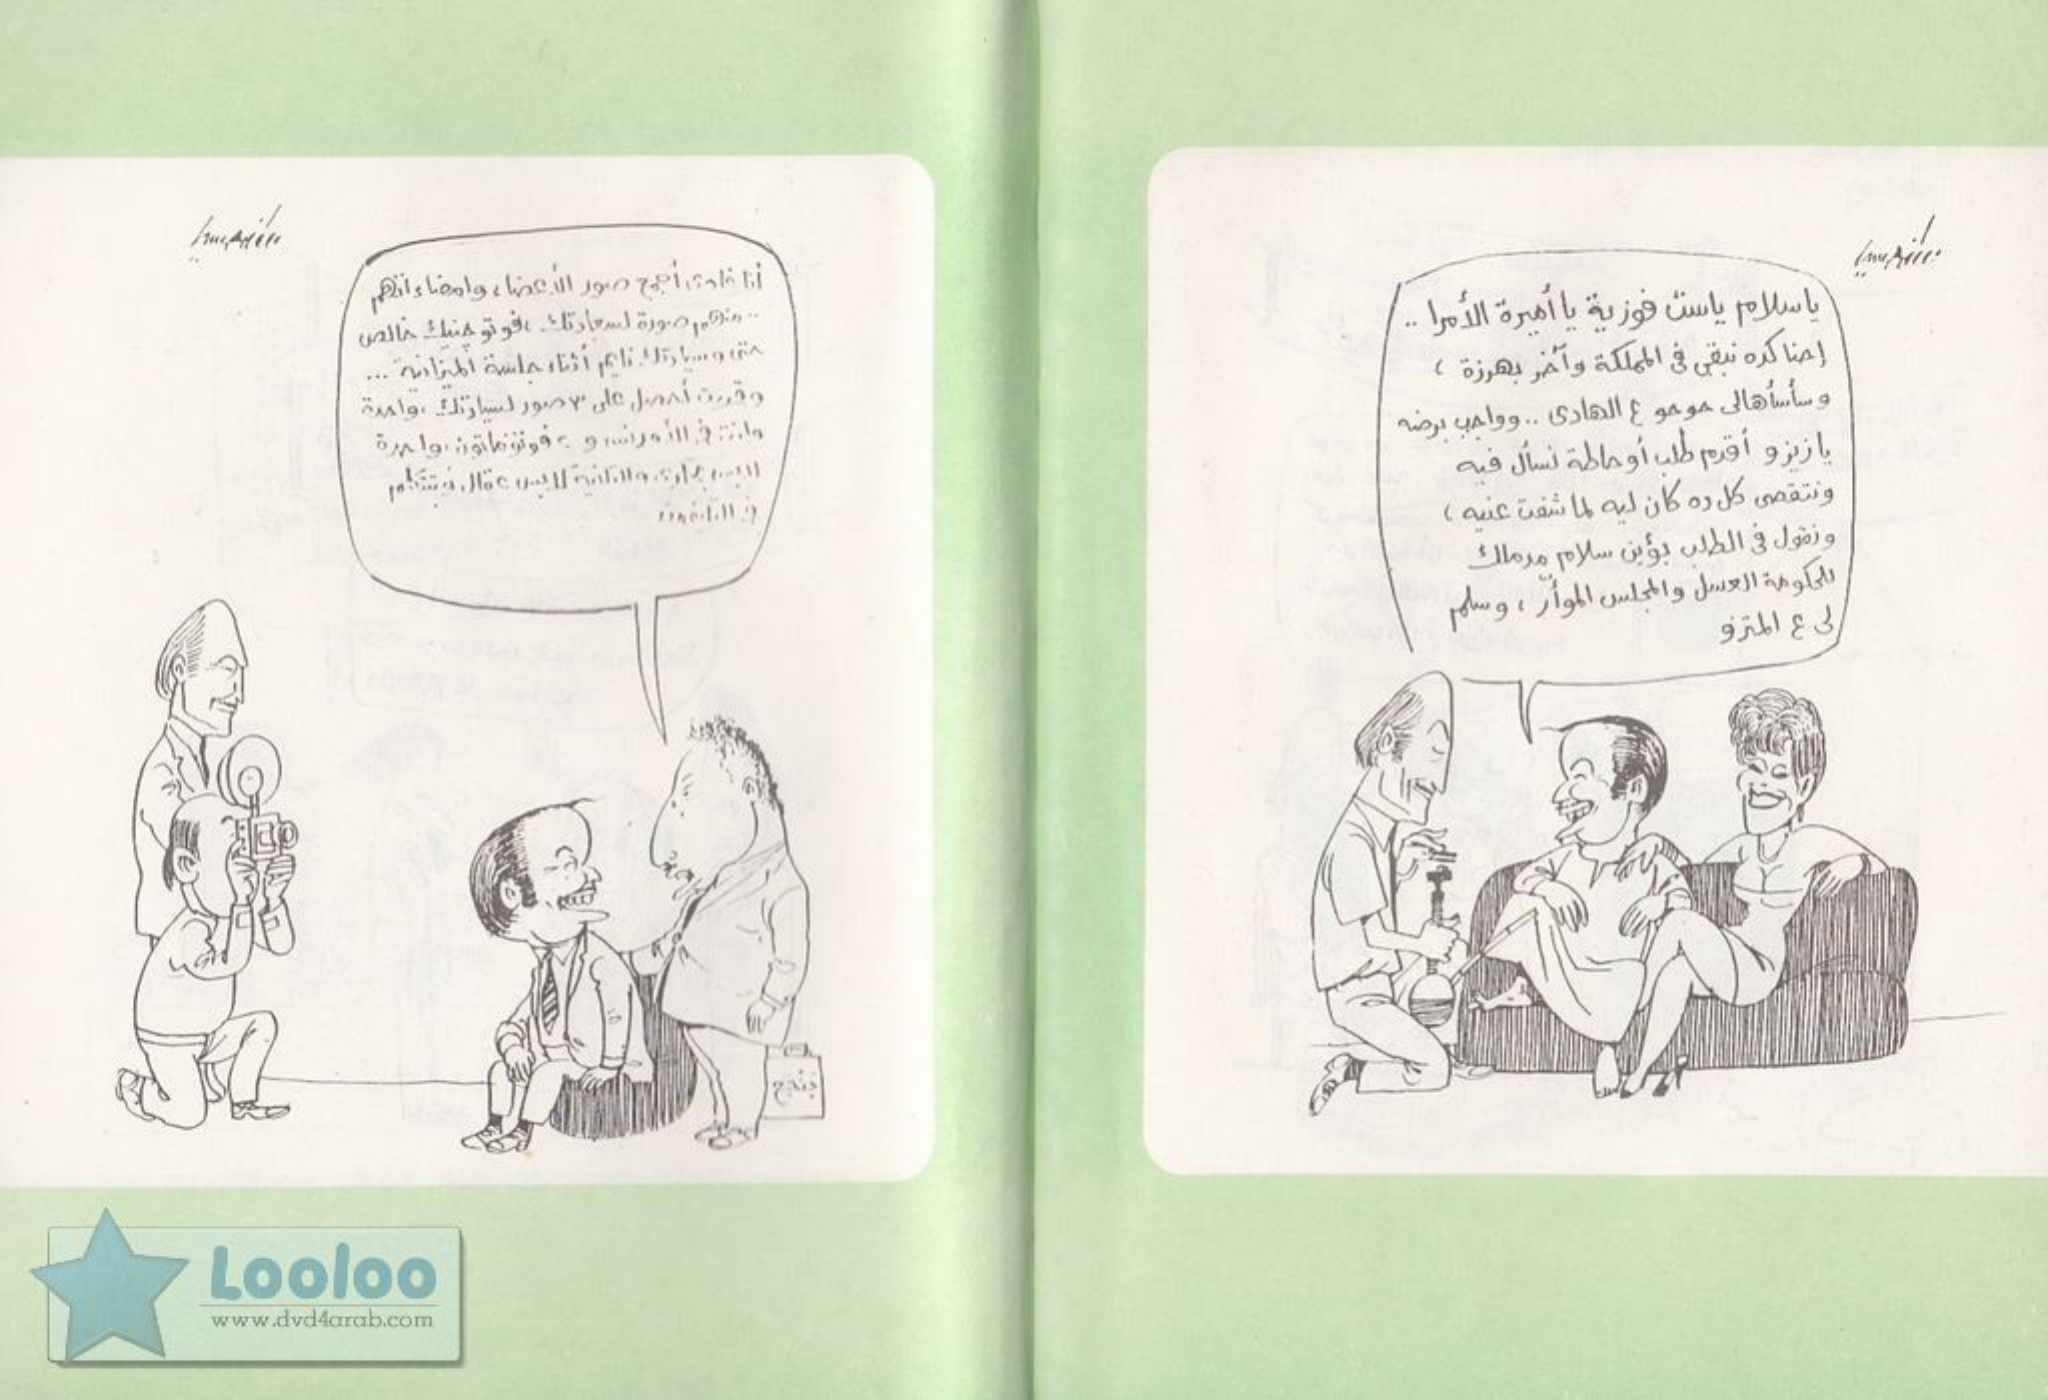 يا سلام يا ست فوزية يا أميرة الأمرا ..
إحنا كده نبقى فى المملكة وآخر بهرزة ،
وسأسأهالى حوحو ع الهادى .. وواجب برضه
يا زيزو أقدم طلب أو حاطة نسأل فيه
ونتقصى كل ده كان ليه لما شفت عنيه ،
ونقول فى الطلب بؤين سلام مدملك
للحكومة العسل والمجلس الموأر ، وسلم
لى ع المترو
أنا غاوى أجمع صور الأعضاء وامضاءاتهم
.. منهم صورة لسعادتك ، فوتوجنيك خالص
حتى وسيادتك نايم أثناء جلسة الميزانية ...
وقدرت أحصل على ٣ صور لسيادتك ، واحدة
وانت فى الأمرانس و ٢ فوتونماتون ، واحدة
لابس عادى والتانية لابس عقال وبتتكلم
فى التليفون
جنجح
Looloo
www.dvd4arab.com